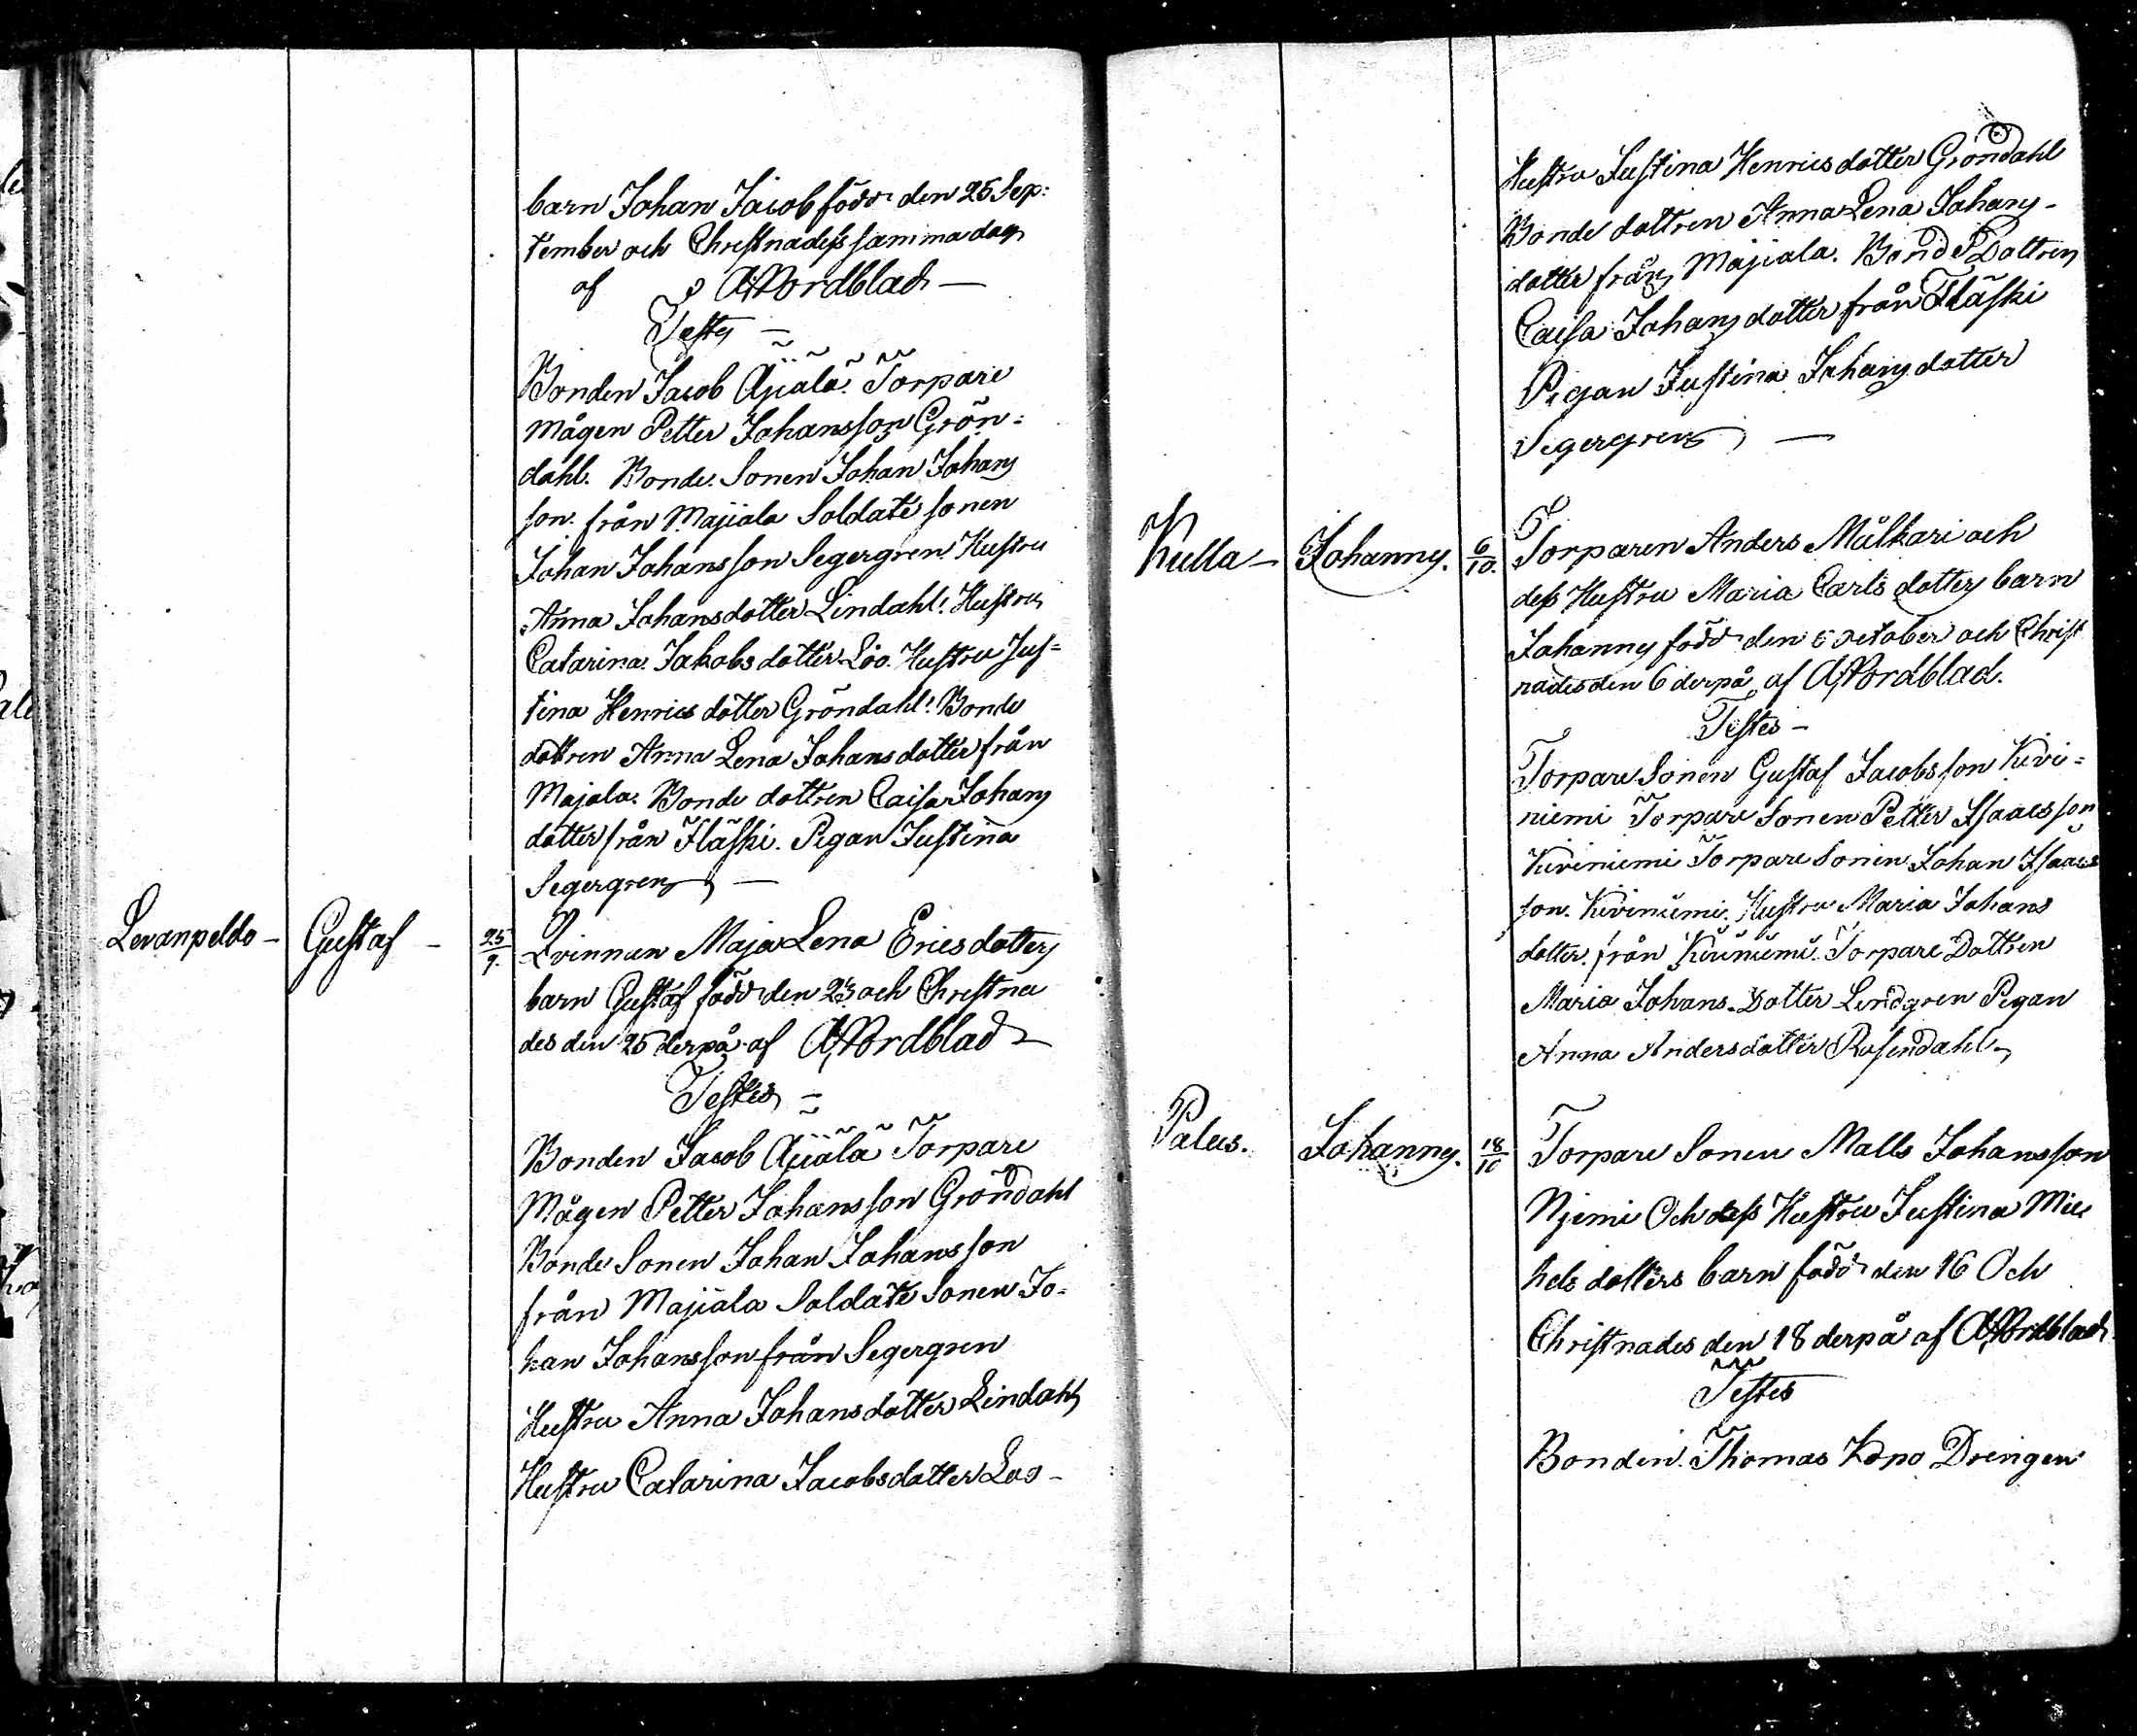 barn Johan Jacob född den 25 Sep:
tember och Christnades samma dag
af A Nordblad
Testes
Bonden Jacob Äijälä. Torpare
mågen Petter Johansson Grön=
dahl. Bonde Sonen Johan Johans
son. från Majiala Soldate sonen
Johan Johansson Segergren Hustru
Anna Johansdotter Lindahl. Hustru
Catarina. Jakobs dotter Löo. Hustru Jus=
tina Henrics dotter Gröndahl. Bonde
dottren Anna Lena Johansdotter från
Majala. Bonde dottren Caisa Johans
dotter från Fläski. Pigan Justina
Segergren —
Levanpeldo — Gustaf — 25/9. Qvinnan Maja Lena Erics dotters
barn Gustaf född den 23 och Christna
des den 25 derpå af A Nordblad
Testes —
Bonden Jacob Äijälä Torpare
Mågen Petter Johansson Gröndahl
Bonde Sonen Johan Johansson
från Majiala Soldate Sonen Jo=
han Johansson från Segergren
Hustru Anna Johansdotter Lindahl
Hustru Catarina Jacobsdotter Loo —
Hustru Justina Henricsdotter Gröndahl
Bonde dottren Anna Lena Johans-
dotter från Majiala. Bonde Dottren
Caisa Johans dotter från Fläski
Pigan Justina Johans dotter
Segergren —
Kulla — Johannes. 6/10. Torparen Anders Mälkäri och
dess Hustru Maria Carls dotters barn
Johannes född den 5 October och Christ
nades den 6 derpå af A Nordblad.
Testes —
Torpare Sonen Gustaf Jacobsson Kivi=
niemi Torpare Sonen Petter Isaacsson
Kiviniemi Torpare Sonen Johan Isaacs
son. Kiviniemi. Hustru Maria Johans
dotter. från Kiviniemi. Torpare Dottren
Maria Johans Dotter Lindgren Pigan
Anna Andersdotter Rosendahl
Palus. Johannes. 18/10 Torpare Sonen Matts Johansson
Njemi Och dess Hustru Justina Mic
hels dotters barn född den 16 Och
Christnades den 18 derpå af A Nordblad
Testes
Bonden. Thomas Knpo Drengen